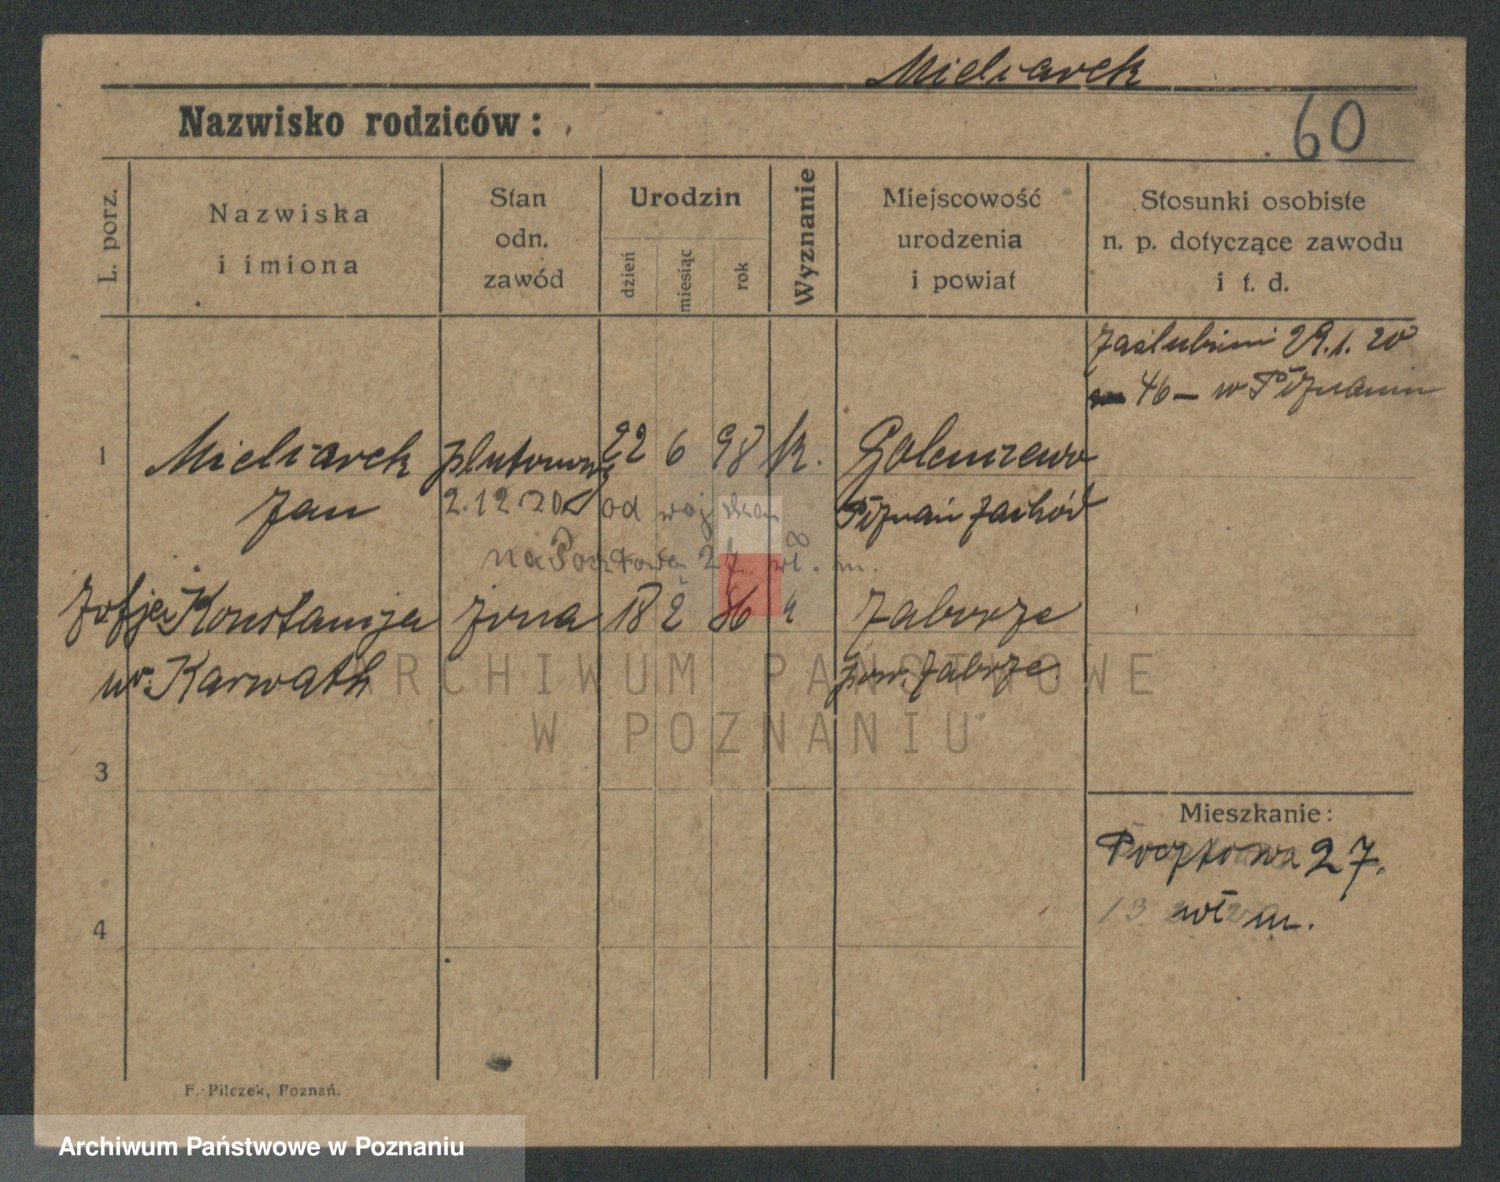 Mieliarek
Nazwisko rodziców:
60
L. porz.
Nazwiska
i imiona
Stan
odn.
zawód
Urodzin
dzień
miesiąc
rok
Wyznanie
Miejscowość
urodzenia
i powiat
Stosunki osobiste
n. p. dotyczące zawodu
i t. d.
zaślubieni 29.1.20
46 – w Poznaniu
1 Mieliarek plutonowy 22 6 98 k. Golenczewo
Jan 2.12 20 od wojska Poznań Zachód
na Pocztowa 27 wł. m.
Zofja Konstancja żona 18 2 86 k Zaborze
ur. Karwath pow. Zabrze
ARCHIWUM PAŃSTWOWE
W POZNANIU
3
Mieszkanie:
Pocztowa 27.
wł m.
4
F. Pilczek, Poznań.
Archiwum Państwowe w Poznaniu